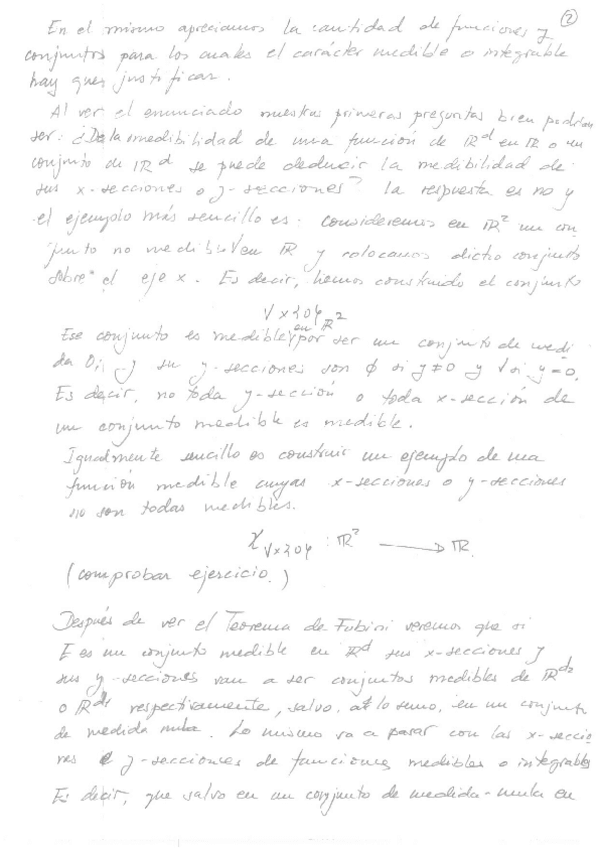 ②
En el mismo apreciamos la cantidad de funciones y
conjuntos para los cuales el carácter medible o integrable
hay que justificar.
Al ver el enunciado nuestras primeras preguntas bien podrían
ser: ¿De la medibilidad de una función de ℝᵈ en ℝ o un
conjunto de ℝᵈ se puede deducir la medibilidad de
sus x-secciones o y-secciones? La respuesta es no y
el ejemplo más sencillo es: consideremos en ℝ² un con
junto no medible V en ℝ y colocamos dicho conjunto
sobre el eje x. Es decir, hemos construido el conjunto
V×{0}
Ese conjunto es medible en ℝ² por ser un conjunto de medi
da 0, y su y-secciones son ∅ si y≠0 y V si y=0.
Es decir, no toda y-sección o toda x-sección de
un conjunto medible es medible.
Igualmente sencillo es construir un ejemplo de una
función medible cuyas x-secciones o y-secciones
no son todas medibles.
χ_{V×{0}} : ℝ² → ℝ.
(comprobar ejercicio.)
Después de ver el Teorema de Fubini veremos que si
E es un conjunto medible en ℝᵈ sus x-secciones y
sus y-secciones van a ser conjuntos medibles de ℝᵈ²
o ℝᵈ¹ respectivamente, salvo, a lo sumo, en un conjunto
de medida nula. Lo mismo va a pasar con las x-seccio
nes e y-secciones de funciones medibles o integrables
Es decir, que salvo en un conjunto de medida-nula en